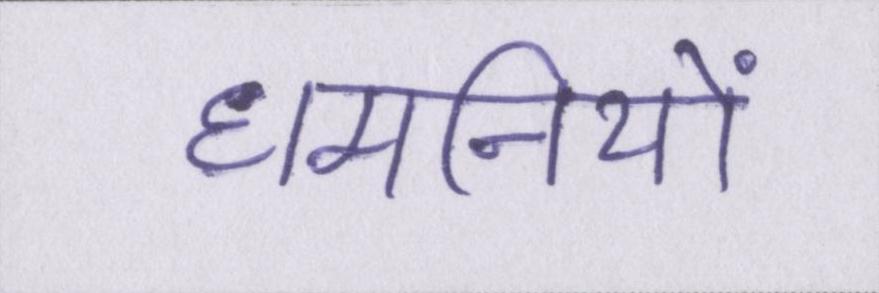 धमनियों